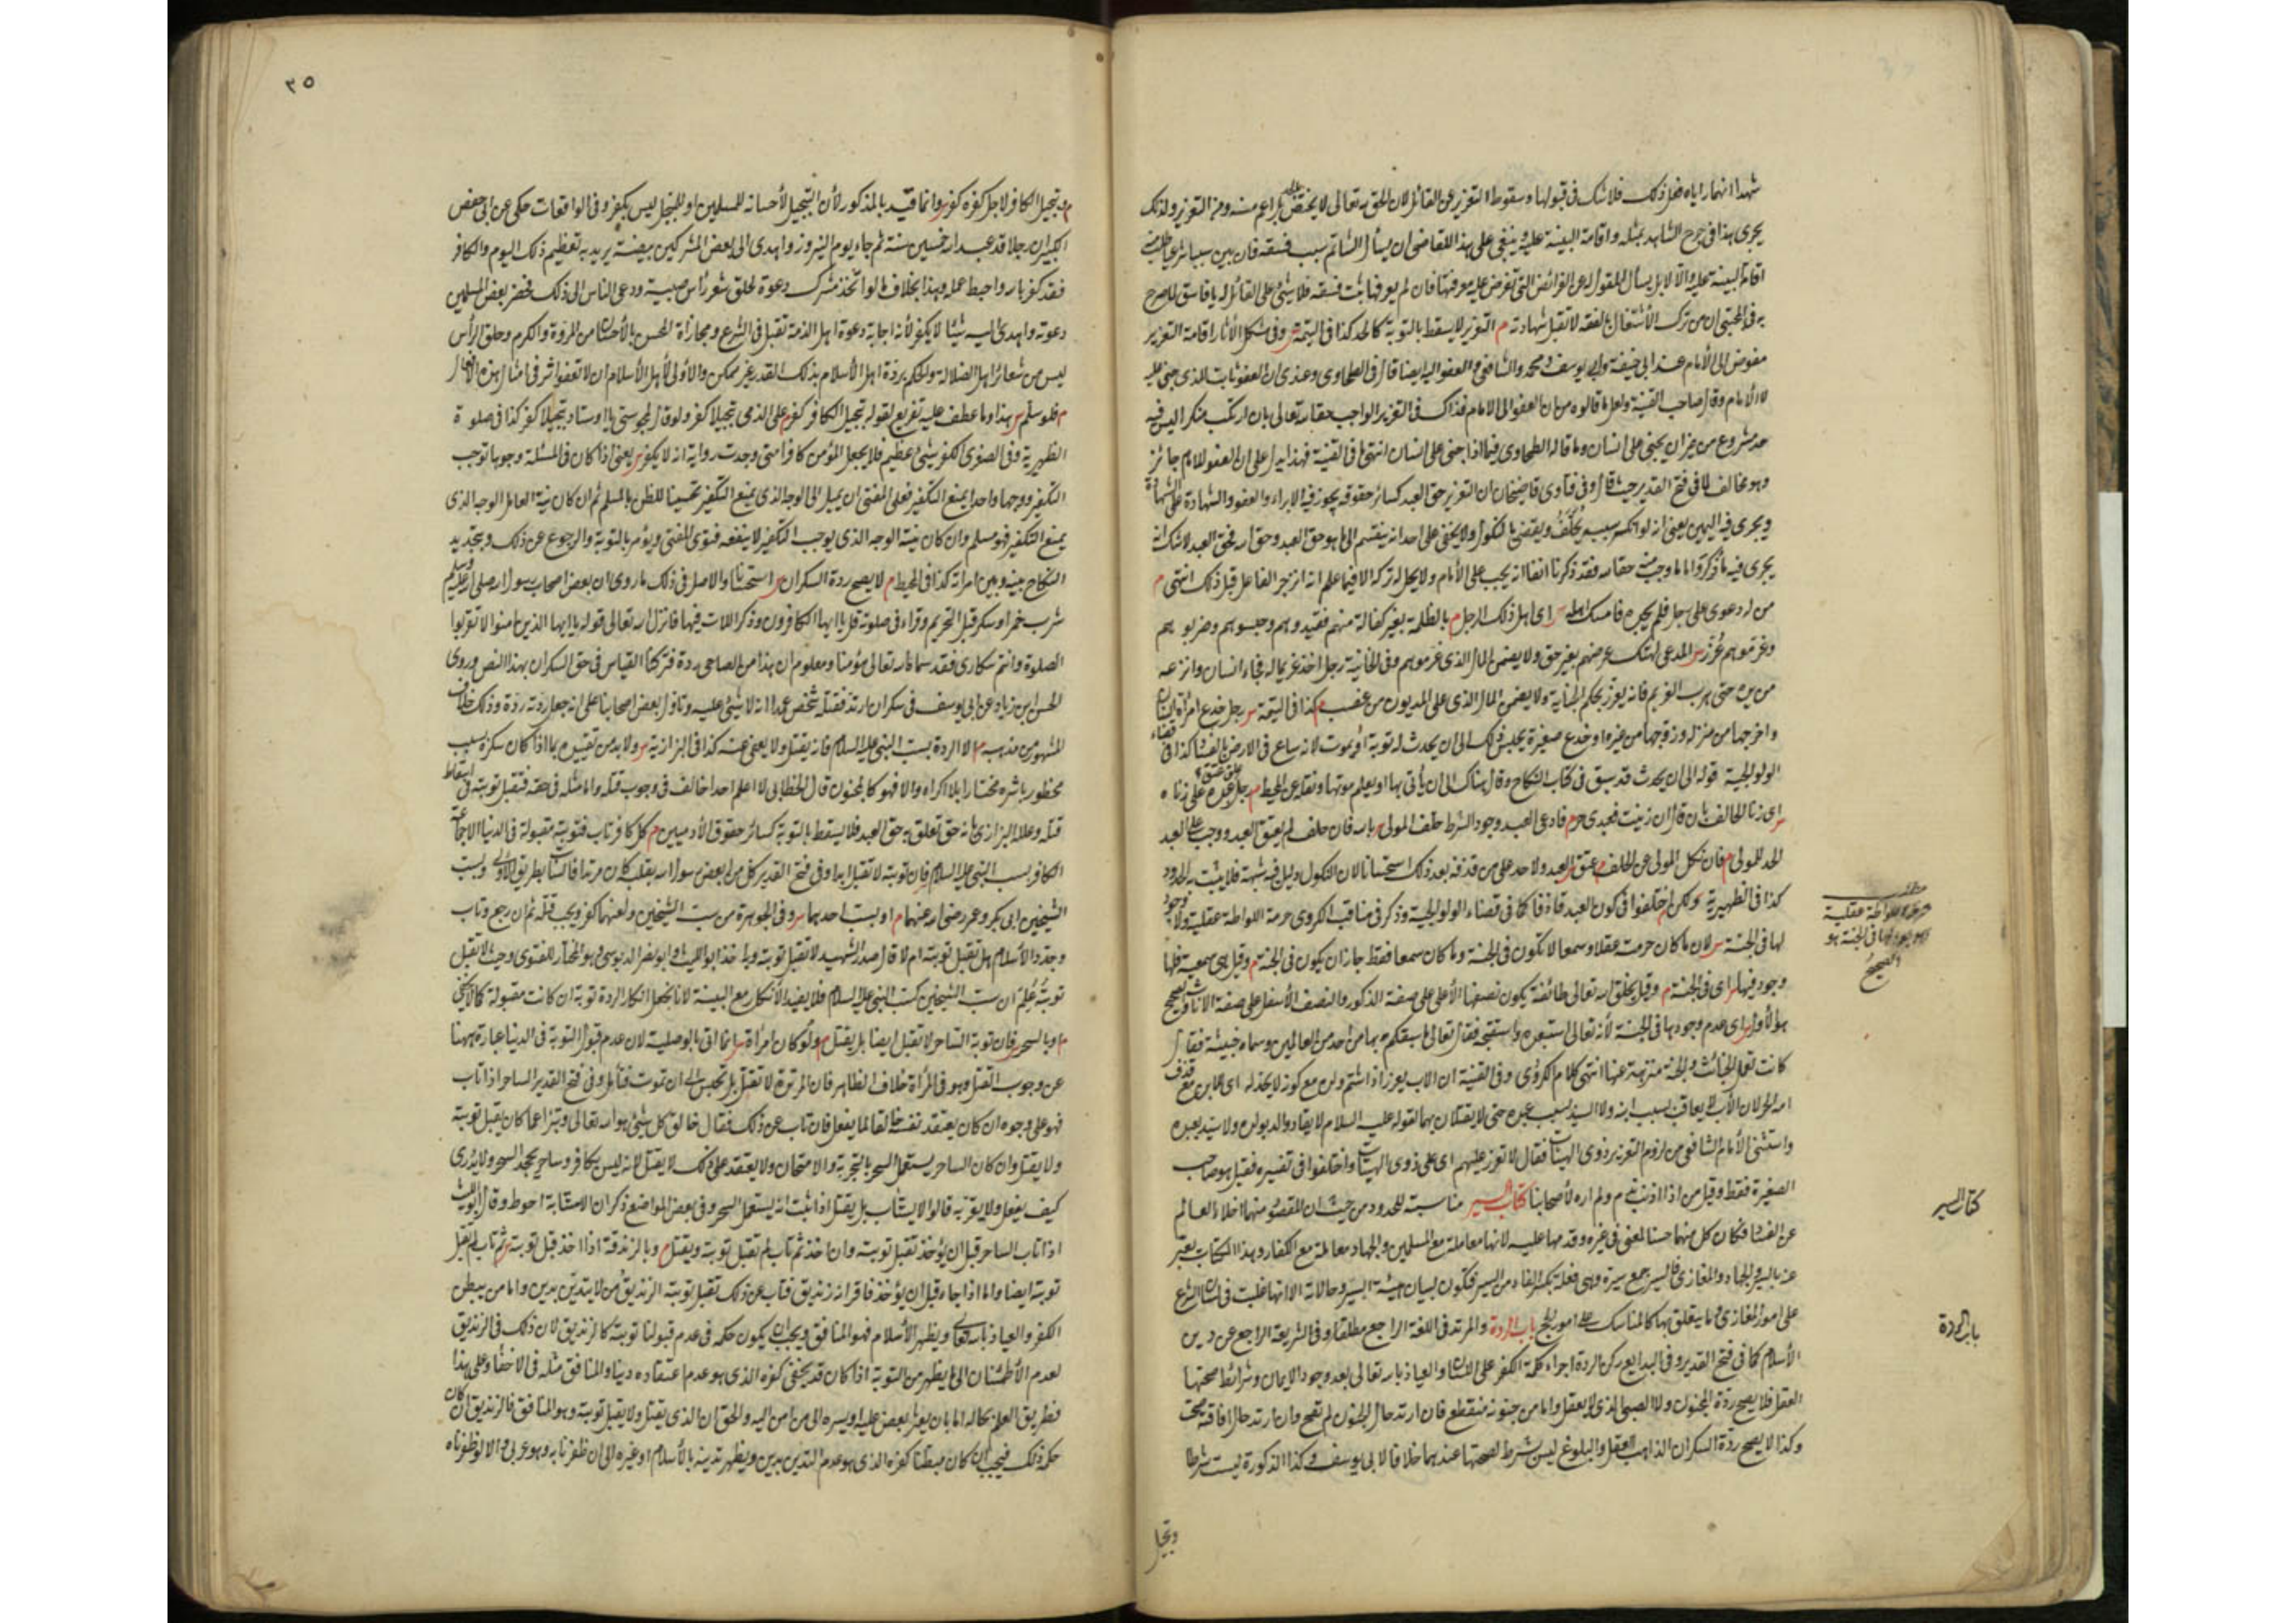 شهدا انهما راياه فعل ذلك فلا شك فى قبولها وسقوط التعزير عن القائل لان الحق لله تعالى لا يختص
يجرى هذا فى جرح الشاهد بمثله واقامة البينة عليه وينبغى على هذا للقاضى ان يسأل الشاتم سبب فسقه فان بين سببا شرعيا طلب منه
اقامة البينة عليه والا لا بل يسأل المقول له عن الفرائض التى تفرض عليه معرفتها فان لم يعرفها ثبت فسقه فلا شئ على القائل له يا فاسق لما صرح
به فى المجتبى ان من ترك الاشتغال بالفقه لا تقبل شهادته م التعزير لا يسقط بالتوبة كالحد كذا فى اليتيمة س وفى مشكل الآثار اقامة التعزير
مفوض الى الأمام عند ابى حنيفة وابى يوسف ومحمد والشافعى والعفو اليه ايضا قال الطحاوى وعندى ان العفو ثابت للذى جنى عليه
لا للأمام وقال صاحب القنية ولعل ما قالوه من ان العفو الى الامام فذاك فى التعزير الواجب حقا لله تعالى بان ارتكب منكرا ليس فيه
حد مشروع من غير ان يجنى على انسان وما قاله الطحاوى فيما اذا جنى على انسان انتهى ما فى القنية فهذا يدل على ان العفو للامام جائز
وهو مخالف لما فى فتح القدير حيث قال وفى فتاوى قاضيخان ان التعزير حق العبد كسائر حقوقه يجوز فيه الابراء والعفو والشهادة على الشهادة
ويجرى فيه اليمين يعنى انه لو انكر سببه يحلف ويقضى بالنكول ولا يخفى على احد انه ينقسم الى ما هو حق العبد وحق الله فحق العبد لا شك انه
يجرى فيه ما ذكر واما ما وجب منه حقا لله فقد ذكرنا انفا انه يجب على الأمام ولا يحل له تركه الا فيما علم انه انزجر الفاعل قبل ذلك انتهى م
من له دعوى على رجل فلم يجده فامسك اهله س اى اهل ذلك الرجل م بالظلمة بغير كفالة منهم فقيدوهم وحبسوهم وضربوهم
وغرموهم عزر س المدعى لهتك عرضهم بغير حق ولا يضمن المال الذى غرموهم وفى الخانية رجل اخذ غريما له فجاء انسان وانزعه
من يده حتى هرب الغريم فانه يعزر بحكم الجناية ولا يضمن المال الذى على المديون من غصب م كذا فى اليتيمة س رجل خدع امرأة انسان
واخرجها من منزله وزوجها من غيره او خدع صغيرة يحبس كذلك الى ان يحدث له توبة او يموت لانه ساع فى الارض بالفساد كذا فى قضاء
الولوالجية قوله الى ان يحدث قد سبق فى كتاب النكاح وقال هناك الى ان يأتى بها او يعلم موتها ونقله عن المحيط م رجل علق عتق عبده على زناه
س اى زنا الحالف بان قال ان زنيت فعبدى حر م فادعى العبد وجود الشرط حلف المولى س بالله فان حلف لم يعتق العبد ووجب على العبد
الحد للمولى م فان نكل المولى عن الحلف م عتق س العبد ولا حد على من قذفه بعد ذلك استحسانا لان النكول دليل فيه شبهة فلا يثبت به الحدود
كذا فى الظهيرية ولكن اختلفوا فى كون العبد قاذفا كما فى قضاء الولوالجية وذكر فى مناقب الكردرى حرمة اللواطة عقلية ولا وجود
لها فى الجنة س لان ما كان حرمته عقلا وسمعا لا تكون فى الجنة وما كان سمعا فقط جاز ان يكون فى الجنة م وقيل هى سمعية فلها
وجود فيها س اى فى الجنة م وقيل يخلق الله تعالى طائفة يكون نصفها الأعلى على صفة الذكور والنصف الأسفل على صفة الاناث والصحيح
هو الأول س اى عدم وجودها فى الجنة لأنه تعالى استبعده واستقبحه فقال تعالى ما سبقكم بها من احد من العالمين وسماه خبيثة فقال
كانت تعمل الخبائث والجنة منزهة عنها انتهى كلام الكردرى وفى القنية ان الاب يعزر اذا شتم ولده مع كونه لا يحد له اى للابن مع قذف
امه الحر لان الأب لا يعاقب بسبب ابنه ولا السيد بسبب عبده حتى لا يقتلان بهما لقوله عليه السلام لا يقاد والد بولده ولا سيد بعبده
واستثنى الأمام الشافعى من لزوم التعزير ذوى الهيئات فقال لا تعزر عليهم اى على ذوى الهيئات واختلفوا فى تفسيره فقيل هو صاحب
الصغيرة فقط وقيل من اذا اذنب ندم ولم اره لأصحابنا كتاب السير مناسبة للحدود من حيث ان المقصود منهما اخلاء العالم
عن الفساد فكان كل منهما حسنا لمعنى فى غيره وقدمها عليه لانها معاملة مع المسلمين والجهاد معاملة مع الكفار وهذا الكتاب يعبر
عنه بالسير والجهاد والمغازى فالسير جمع سيرة وهى فعلة بكسر الفاء من السير فتكون لبيان هيئة السير وحالاته الا انها غلبت فى لسان الشرع
على امور المغازى وما يتعلق بها كالمناسك على امور الحج باب الردة والمرتد فى اللغة الراجع مطلقا وفى الشريعة الراجع عن دين
الأسلام كما فى فتح القدير وفى البدايع ركن الردة اجراء كلمة الكفر على اللسان والعياذ بالله تعالى بعد وجود الايمان وشرائط صحتها
العقل فلا يصح ردة المجنون ولا الصبى الذى لا يعقل واما من جنونه منقطع فان ارتد حال الجنون لم تصح وان ارتد حال افاقته صحت
وكذا لا يصح ردة السكران الذاهب العقل والبلوغ ليس بشرط لصحتها عندهما خلافا لابى يوسف وكذا الذكورة ليست شرطا
وتبجيل
حرمة اللواطة عقلية
ولا وجود لها فى الجنة هو
الصحيح
كتاب السير
باب الردة
٣٥
م وتبجيل الكافر لاجل كفره كفر س وانما قيد بالمذكور لأن التبجيل لأحسانه للمسلمين او للتبجيل ليس بكفر وفى الواقعات حكى عن ابى حفص
الكبير ان رجلا قد عبد الله خمسين سنة ثم جاء يوم النيروز واهدى الى بعض المشركين بيضة يريد به تعظيم ذلك اليوم والكافر
فقد كفر بالله واحبط عمله وهذا بخلاف ما لو اتخذ مشرك دعوة لحلق شعر رأس صبيه ودعى الناس الى ذلك فحضر بعض المسلمين
دعوته واهدى اليه شيئا لا يكفر لأن اجابة دعوة اهل الذمة تقبل فى الشرع ومجازاة المحسن بالأحسان من المروة والكرم وحلق الرأس
ليس من شعائر اهل الضلالة والحكم بردة اهل الأسلام بذلك القدر غير ممكن والأولى لأهل الأسلام ان لا تفعلوا
م فلو سلم س هذا وما عطف عليه تفريع لقوله تبجيل الكافر كفر م على الذمى تبجيلا كفر ولو قال لمجوسى يا استاد تبجيلا كفر كذا فى صلوة
الظهيرية وفى الصغرى الكفر شئ عظيم فلا يجعل المؤمن كافرا متى وجدت رواية انه لا يكفر س يعنى اذا كان فى المسئلة وجوها توجب
التكفير ووجها واحدا يمنع التكفير فعلى المفتى ان يميل الى الوجه الذى يمنع التكفير تحسينا للظن بالمسلم ثم ان كان نية العامل الوجه الذى
يمنع التكفير فهو مسلم وان كان نيته الوجه الذى يوجب التكفير لا ينفعه فتوى المفتى ويؤمر بالتوبة والرجوع عن ذلك وبتجديد
النكاح بينه وبين امرأته كذا فى المحيط م لا يصح ردة السكران س استحسانا والاصل فى ذلك ما روى ان بعض اصحاب رسول الله صلى الله عليه وسلم
شرب خمرا وسكر قبل التحريم وقراء فى صلوته قل يا ايها الكافرون وذكر اللات فيها فانزل الله تعالى قوله يا ايها الذين امنوا لا تقربوا
الصلوة وانتم سكارى فقد سماه الله تعالى مؤمنا ومعلوم ان هذا من الصاحى ردة فتركنا القياس فى حق السكران بهذا النص وروى
الحسن ابن زياد عن ابى يوسف فى سكران ارتد فقتله شخص عمدا انه لا شئ عليه وتأول بعض اصحابنا على انه جعل ردته ردة وذلك خلاف
المشهور من مذهبه م الا الردة بسب النبى عليه السلام فانه يقتل ولا يعفى عنه كذا فى البزازية س ولا بد من تقييده بما اذا كان سكره بسبب
محظور باشره مختارا بلا اكراه والا فهو كالمجنون قال الخطابى لا اعلم احدا خالف فى وجوب قتله واما مثله فى حقه فتقبل توبته فى اسقاط
قتله وعلله البزازى بانه حق تعلق به حق العبد فلا يسقط بالتوبة كسائر حقوق الأدميين م كل كافر تاب فتوبته مقبولة فى الدنيا الا جماعة
الكافر بسب النبى عليه السلام فان توبته لا تقبل ابدا وفى فتح القدير كل من ابغض رسول الله بقلبه كان مرتدا فالساب بطريق الأولى وبسب
الشيخين ابى بكر وعمر رضى الله عنهما م او بسب احدهما س وفى الجوهرة من سب الشيخين ولعنهما كفر ويجب قتله ثم ان رجع وتاب
وجدد الأسلام هل تقبل توبته ام لا قال صدر الشهيد لا تقبل توبته وبه اخذ ابو الليث وابو نصر الدبوسى وهو المختار للفتوى وحيث لا تقبل
توبته عُلِم ان سب الشيخين كسب النبى عليه السلام فلا يفيد الأنكار مع البينة لانا نجعل انكار الردة توبة ان كانت مقبولة كما لا يخفى
م او بالسحر فان توبة الساحر لا تقبل ايضا بل يقتل م ولو كان امرأة س انما اتى بالوصلية لان عدم قبول التوبة فى الدنيا عبارة ههنا
عن وجوب القتل وهو فى المرأة خلاف الظاهر فان المرتدة لا تقتل بل تحبس الى ان تموت فتأمل وفى فتح القدير الساحر اذا تاب
فهو على وجوه ان كان يعتقد نفسه خالقا لما يفعل فان تاب عن ذلك فقال خالق كل شئ هو الله تعالى وتبرأ عما كان يقبل توبته
ولا يقتل وان كان الساحر يستعمل السحر بالتجربة والامتحان ولا يعتقد على ذلك لا يقتل لانه ليس بكافر وساحر يجحد السحر ولا يدرى
كيف يفعل ولا يقر به قالوا لا يستتاب بل يقتل اذا ثبت انه يستعمل السحر وفى بعض المواضع ذكر ان الاستتابة احوط وقال ابو الليث
اذا تاب الساحر قبل ان يؤخذ تقبل توبته وان اخذ ثم تاب لم تقبل توبته ويقتل م وبالزندقة اذا اخذ قبل توبته س ثم تاب لم تقبل
توبته ايضا واما اذا جاء قبل ان يؤخذ فاقر انه زنديق فتاب عن ذلك تقبل توبته الزنديق من لا يتدين بدين واما من يبطن
الكفر والعياذ بالله تعالى ويظهر الأسلام فهو المنافق ويجب ان يكون حكمه فى عدم قبولنا توبته كالزنديق لان ذلك فى الزنديق
لعدم الأطمئنان الى ما يظهر من التوبة اذا كان قد يخفى كفره الذى هو عدم اعتقاده دينا والمنافق مثله فى الاخفاء وعلى هذا
فطريق العلم بحاله اما بان يعثر بعض عليه او يسره الى من امن اليه والحق ان الذى يقتل ولا يقبل توبته وهو المنافق فالزنديق ان كان
حكمه ذلك فيجب ان كان مبطنا كفره الذى هو عدم التدين بدين ويظهر تدينه بالأسلام او غيره الى ان ظفرنا به وهو عربى والا لو فرضناه